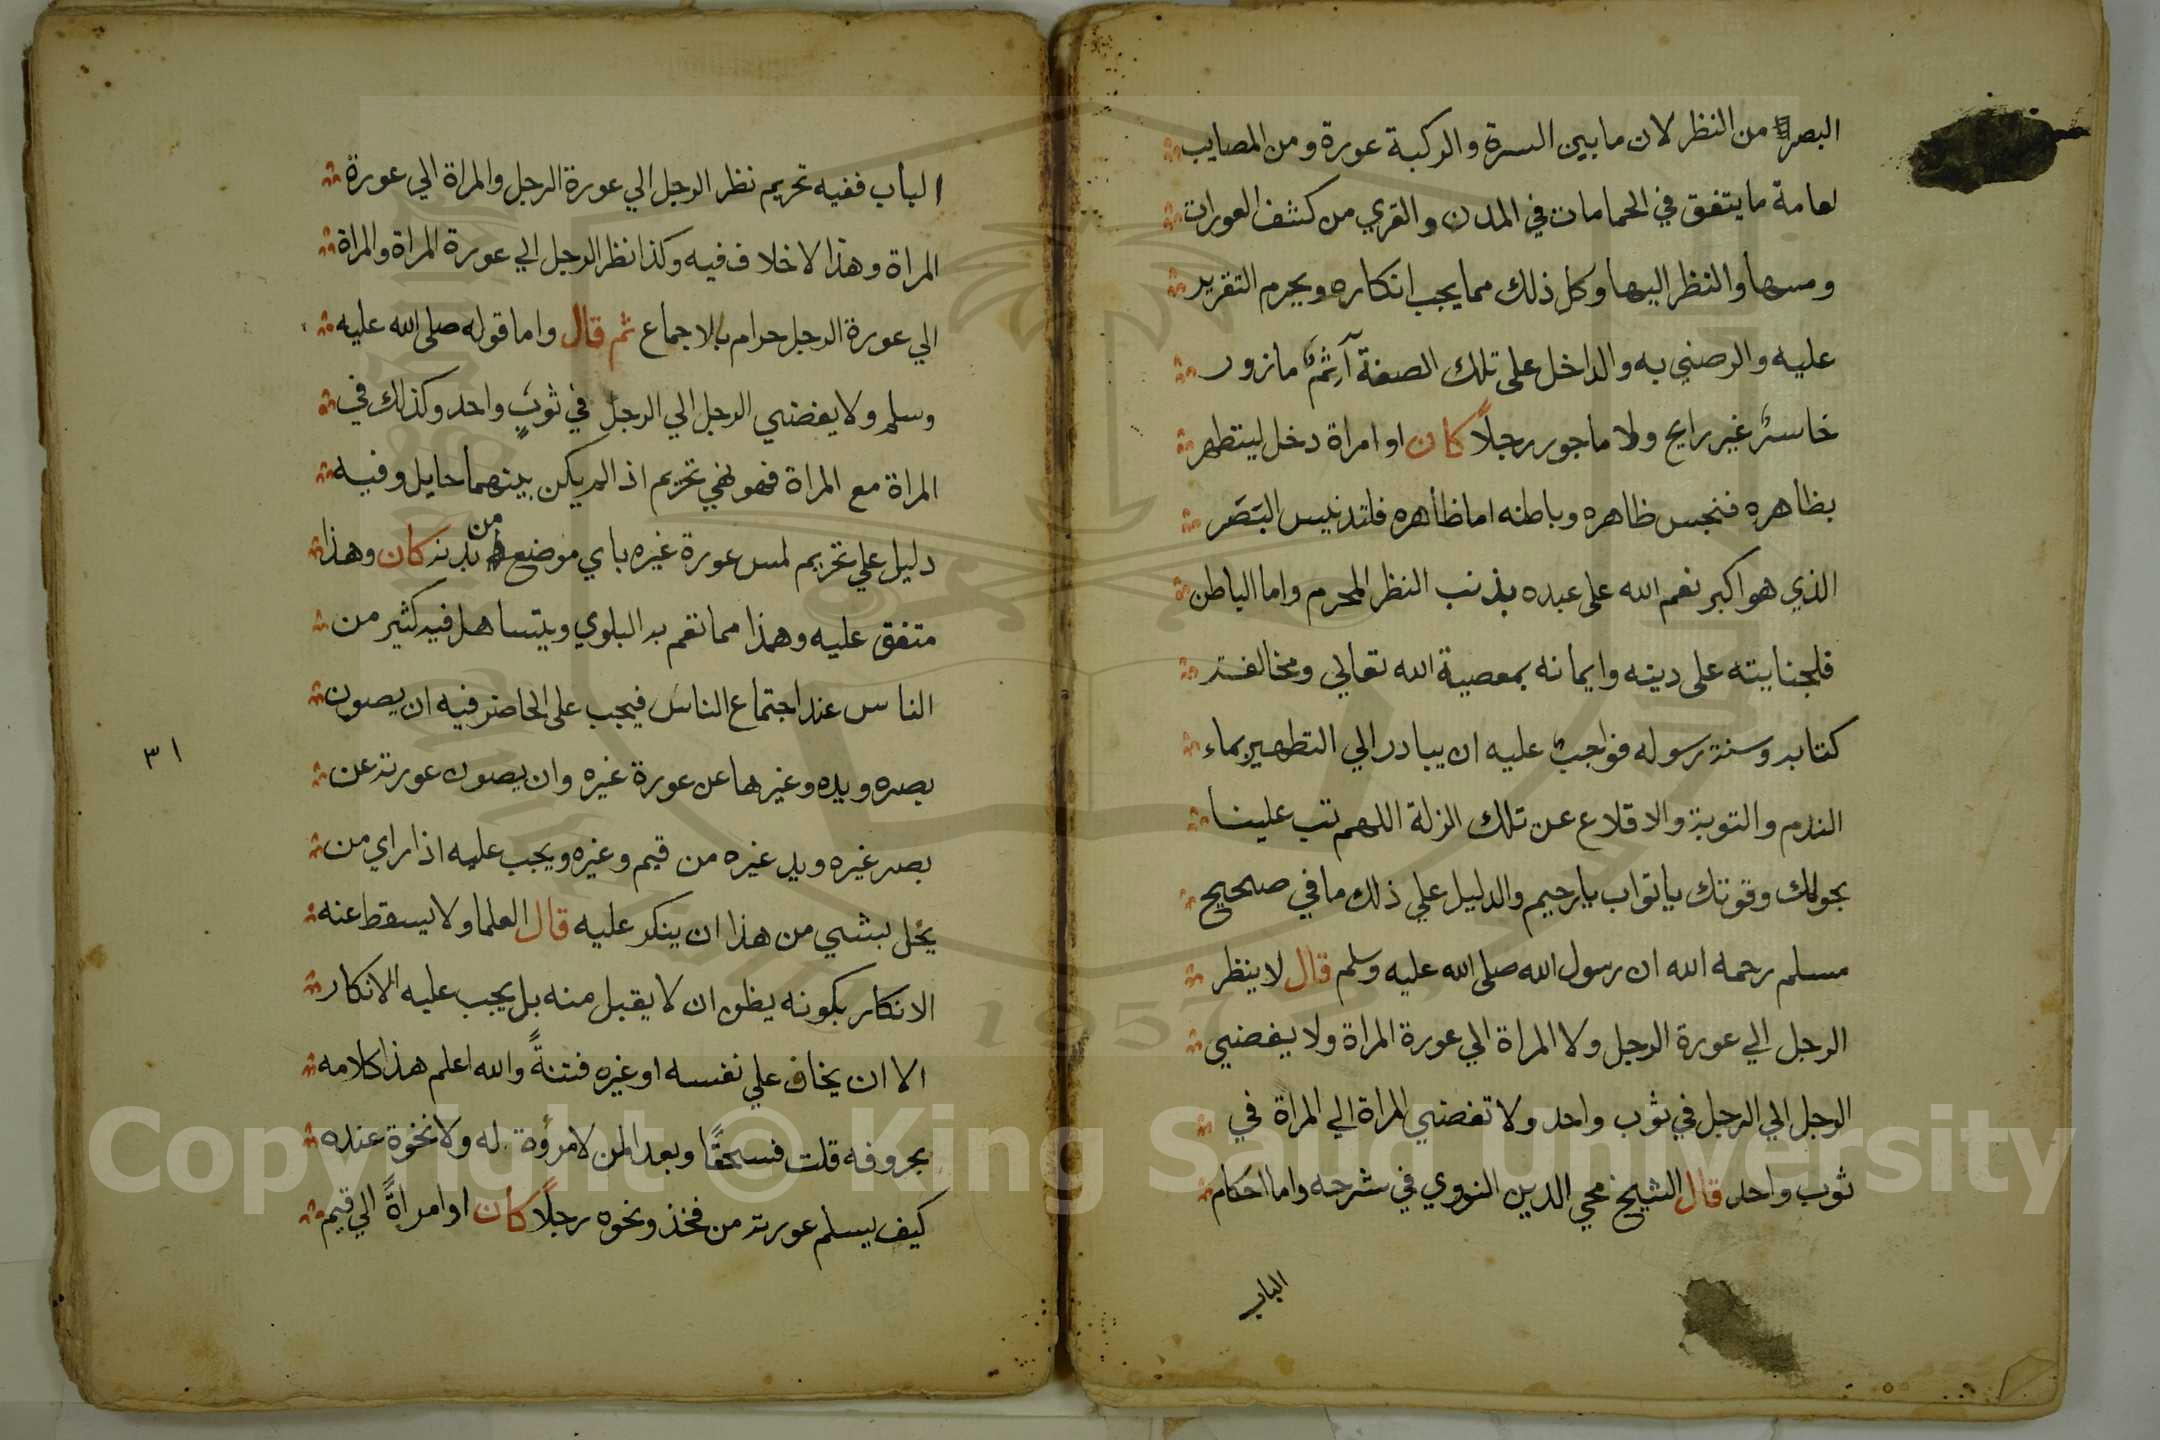 البصر من النظر لان ما بين السرة والركبة عورة ومن المصايب
لعامة ما يتفق في الحمامات في المدن والقري من كشف العورات
ومسها والنظر اليها وكل ذلك مما يجب انكاره ويحرم التقرير
عليه والرضي به والداخل على تلك الصفة آثمٌ مازور
خاسرٌ غير رابح ولا ماجور رجلاً كان او امراة دخل ليتطهر
بظاهره فنجس ظاهره وباطنه اما ظاهره فلتدنيس البَصَر
الذي هو اكبر نعم الله على عبده بذنب النظر المحرم واما الباطن
فلجنايته على دينه وايمانه بمعصية الله تعالي ومخالفته
كتابه وسنة رسوله فواجبٌ عليه ان يبادر الي التطهير بماء
الندم والتوبة والاقلاع عن تلك الزلة اللهم تب علينا
بحولك وقوتك يا تواب يا رحيم والدليل علي ذلك ما في صحيح
مسلم رحمه الله ان رسول الله صلى الله عليه وسلم قال لا ينظر
الرجل الي عورة الرجل ولا المراة الي عورة المراة ولا يفضي
الرجل الي الرجل في ثوب واحد ولا تفضي المراة الي المراة في
ثوب واحد قال الشيخ محي الدين النووي في شرحه واما احكام
الباب
الباب ففيه تحريم نظر الرجل الي عورة الرجل والمراة الي عورة
المراة وهذا لا خلاف فيه وكذا نظر الرجل الي عورة المراة والمراة
الي عورة الرجل حرام بالاجماع ثم قال واما قوله صلى الله عليه
وسلم ولا يفضي الرجل الي الرجل في ثوبٍ واحد وكذلك في
المراة مع المراة فهو نهي تحريم اذا لم يكن بينهما حايل وفيه
دليل علي تحريم لمس عورة غيره باي موضع من بدنه كان وهذا
متفق عليه وهذا مما تعم به البلوي ويتساهل فيه كثير من
الناس عند اجتماع الناس فيجب على الحاضر فيه ان يصون
بصره ويده وغيرها عن عورة غيره وان يصون عورته عن
٣١
بصر غيره ويد غيره من قيم وغيره ويجب عليه اذا راي من
يخل بشي من هذا ان ينكر عليه قال العلما ولا يسقط عنه
الانكار بكونه يظن ان لا يقبل منه بل يجب عليه الانكار
الا ان يخاف علي نفسه او غيره فتنةً والله اعلم هذا كلامه
بحروفه قلت فسحقًا وبعدا لمن لا مرؤة له ولا نخوة عنده
كيف يسلم عورته من فخذ ونحوه رجلاً كان او امراةً الي قيم
Copyright © King Saud University
1957